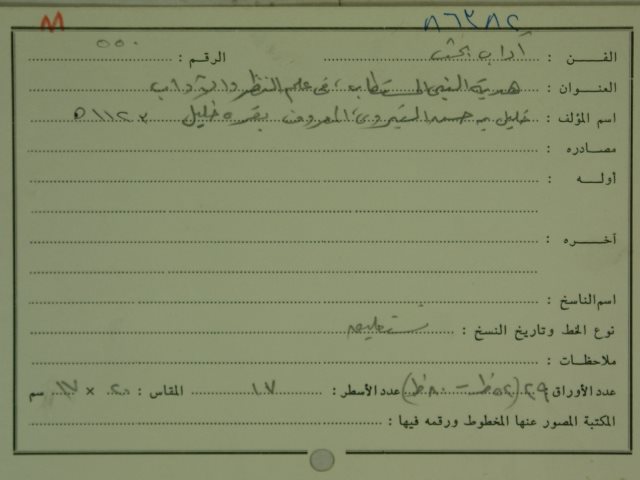 M ٨٦٣٨٢
الفــن : آداب بحث الرقم : ٥٥٠
العنـوان : هدية النبي المستطاب، في علم النظر والآداب
اسم المؤلف : خليل بن حسن التيروي، المعروف بقره خليل ١١٢٣ هـ
مصـادره :
أولــه :
آخــره :
اسم الناسخ :
نوع الخط وتاريخ النسخ : نستعليق
ملاحظـات :
عدد الأوراق ٢٩ (٥٢ظ - ٨٠ظ) عدد الأسطر : ١٧ المقاس : ٢٠ × ١٧ سم
المكتبة المصور عنها المخطوط ورقمه فيها :